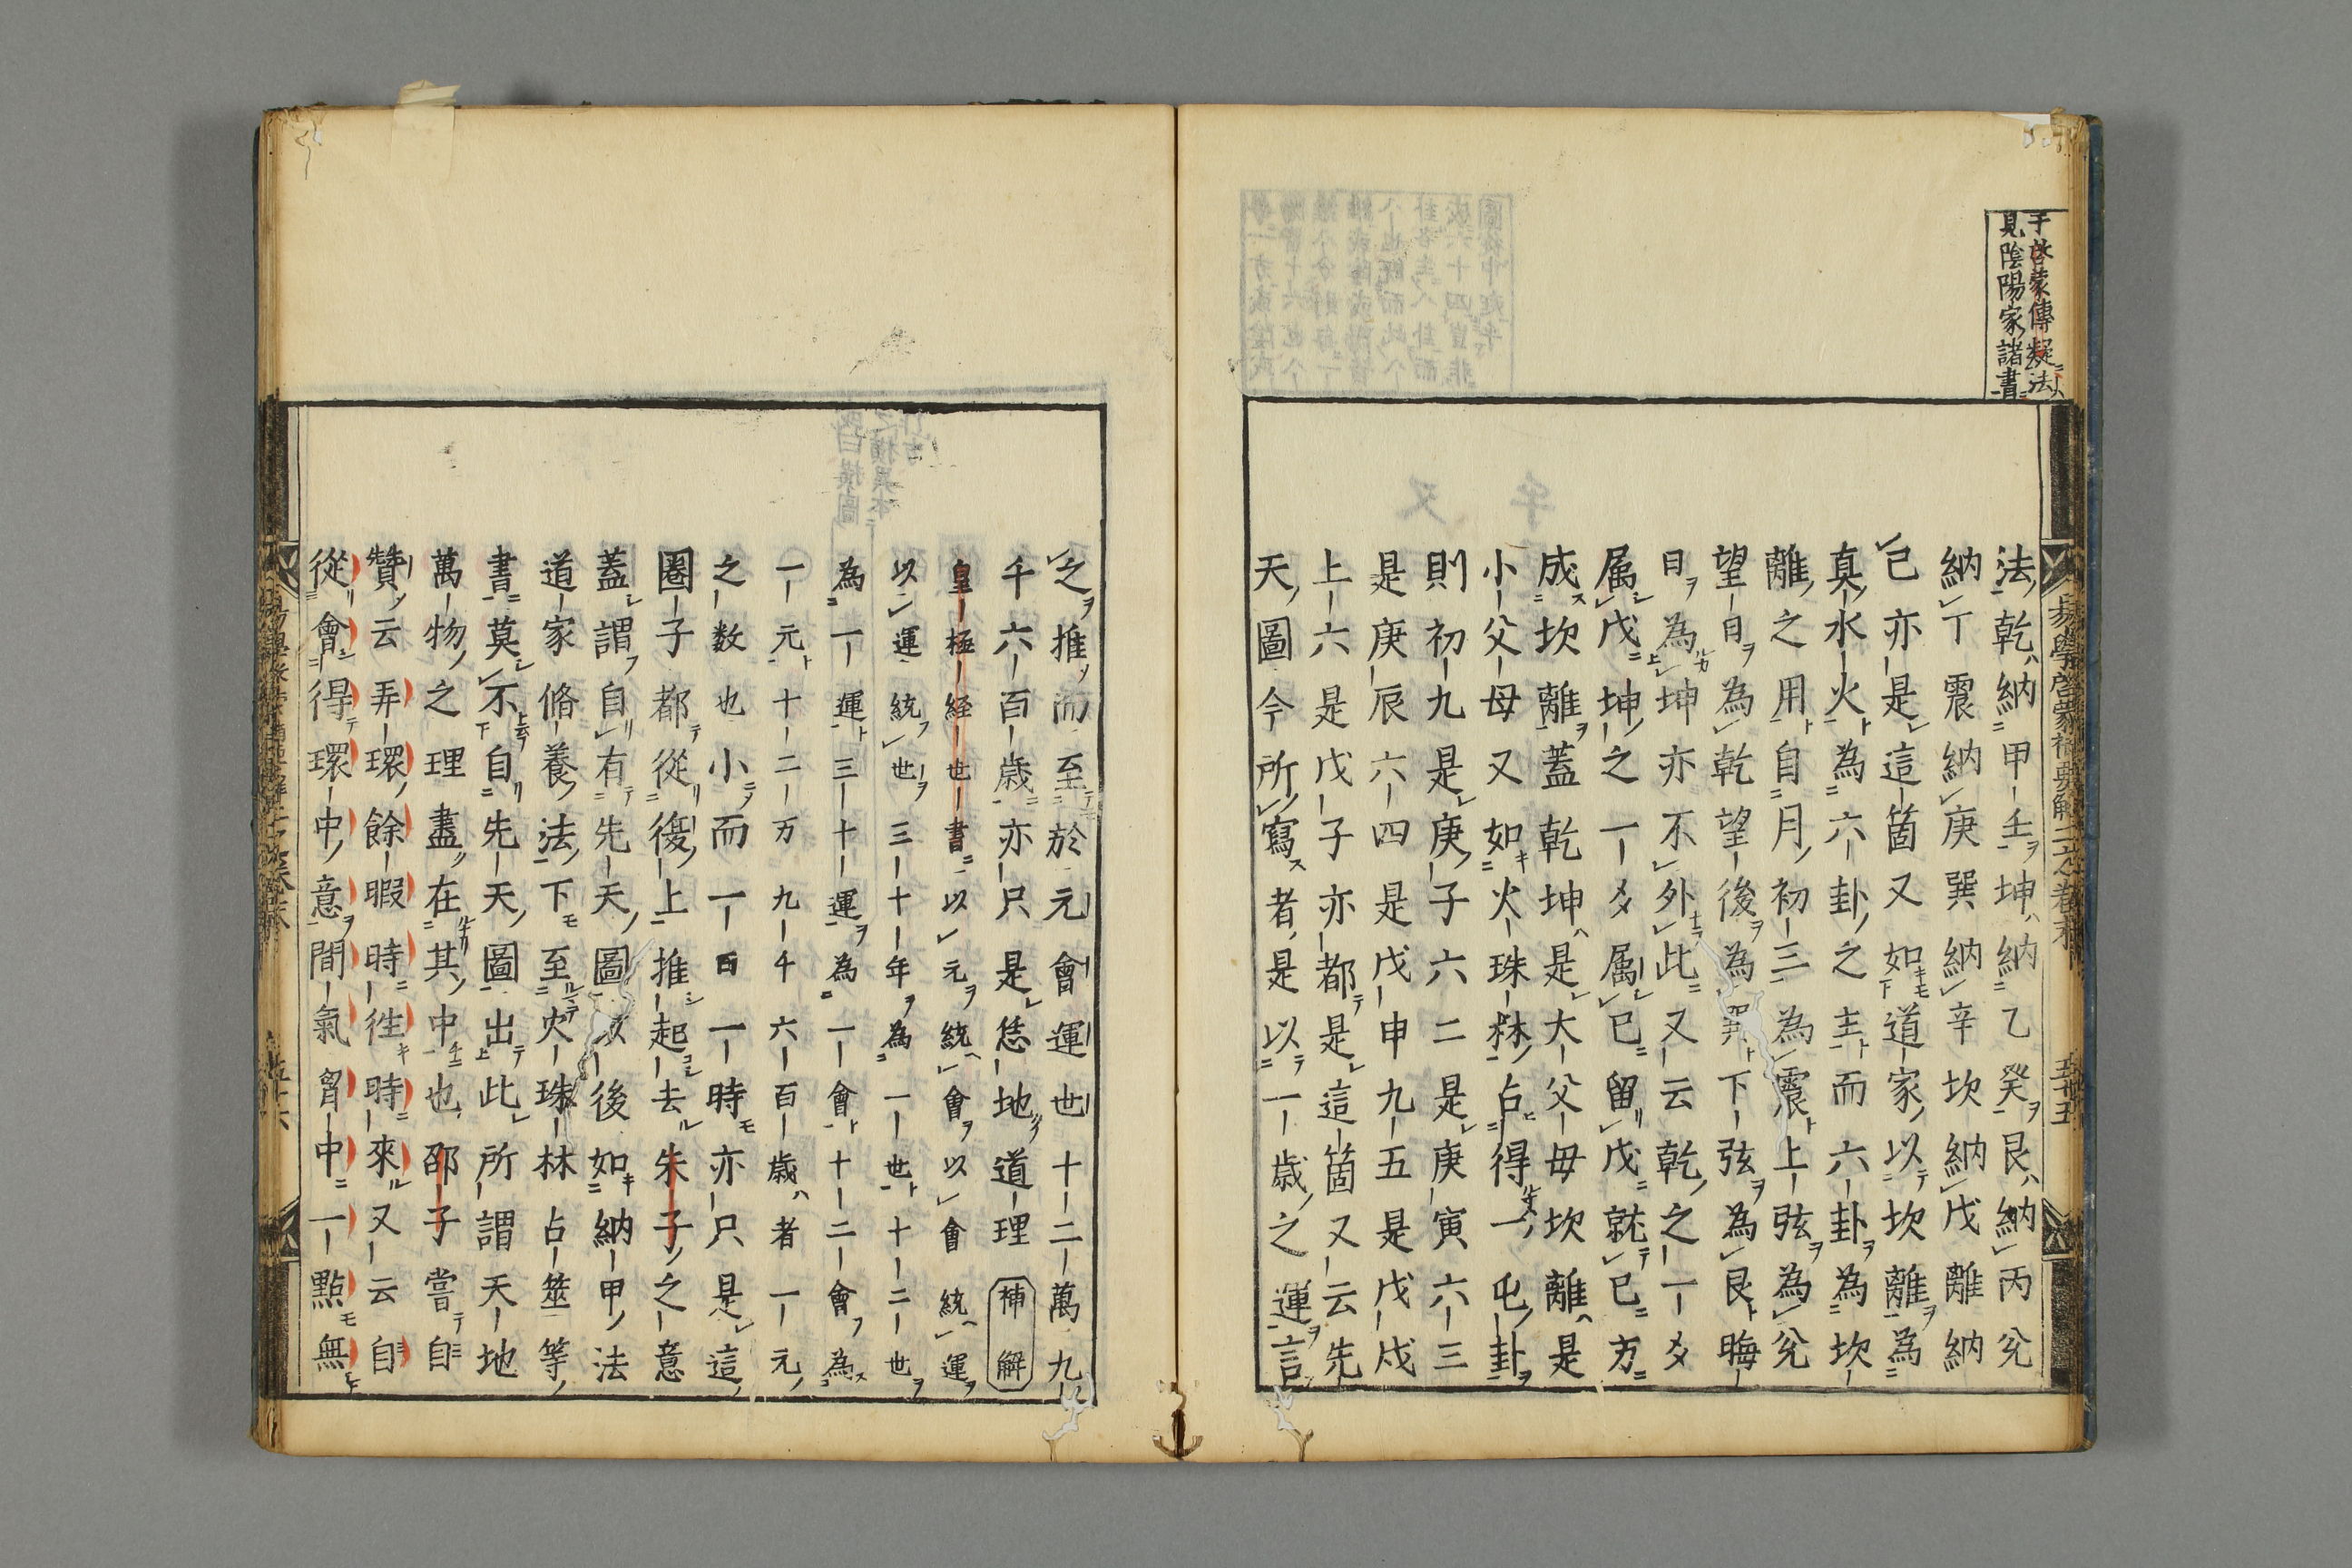 于啓蒙傳疑法
見陰陽家諸書
法乾納甲壬坤納乙癸艮納丙兌
納丁震納庚巽納辛坎納戊離納
己亦是這箇又如道家以坎離為
真水火為六卦之主而六卦為坎
離之用自月初三為震上弦為兌
望日為乾望後為巽下弦為艮晦
日為坤亦不外此又云乾之一爻
属戊坤之一爻属己留戊就己方
成坎離蓋乾坤是大父母坎離是
小父母又如火珠林占得一屯卦
則初九是庚子六二是庚寅六三
是庚辰六四是戊申九五是戊戌
上六是戊子亦都是這箇又云先
天圖今所寫者是以一歳之運言
之推而至於元會運世十二萬九
千六百歳亦只是恁地道理 補解
皇極経世書以元統會以會統運
以運統世三十年為一世十二世
為一運三十運為一會十二會為
一元十二万九千六百歳者一元
之数也小而一日一時亦只是這
圏子都從復上推起去朱子之意
蓋謂自有先天圖以後如納甲法
道家脩養法下至火珠林占筮等
書莫不自先天圖出此所謂天地
萬物之理盡在其中也邵子嘗自
贊云弄環餘暇時往時來又云自
從會得環中意間氣胷中一點無
易學啓蒙補要解二之巻末
五十五